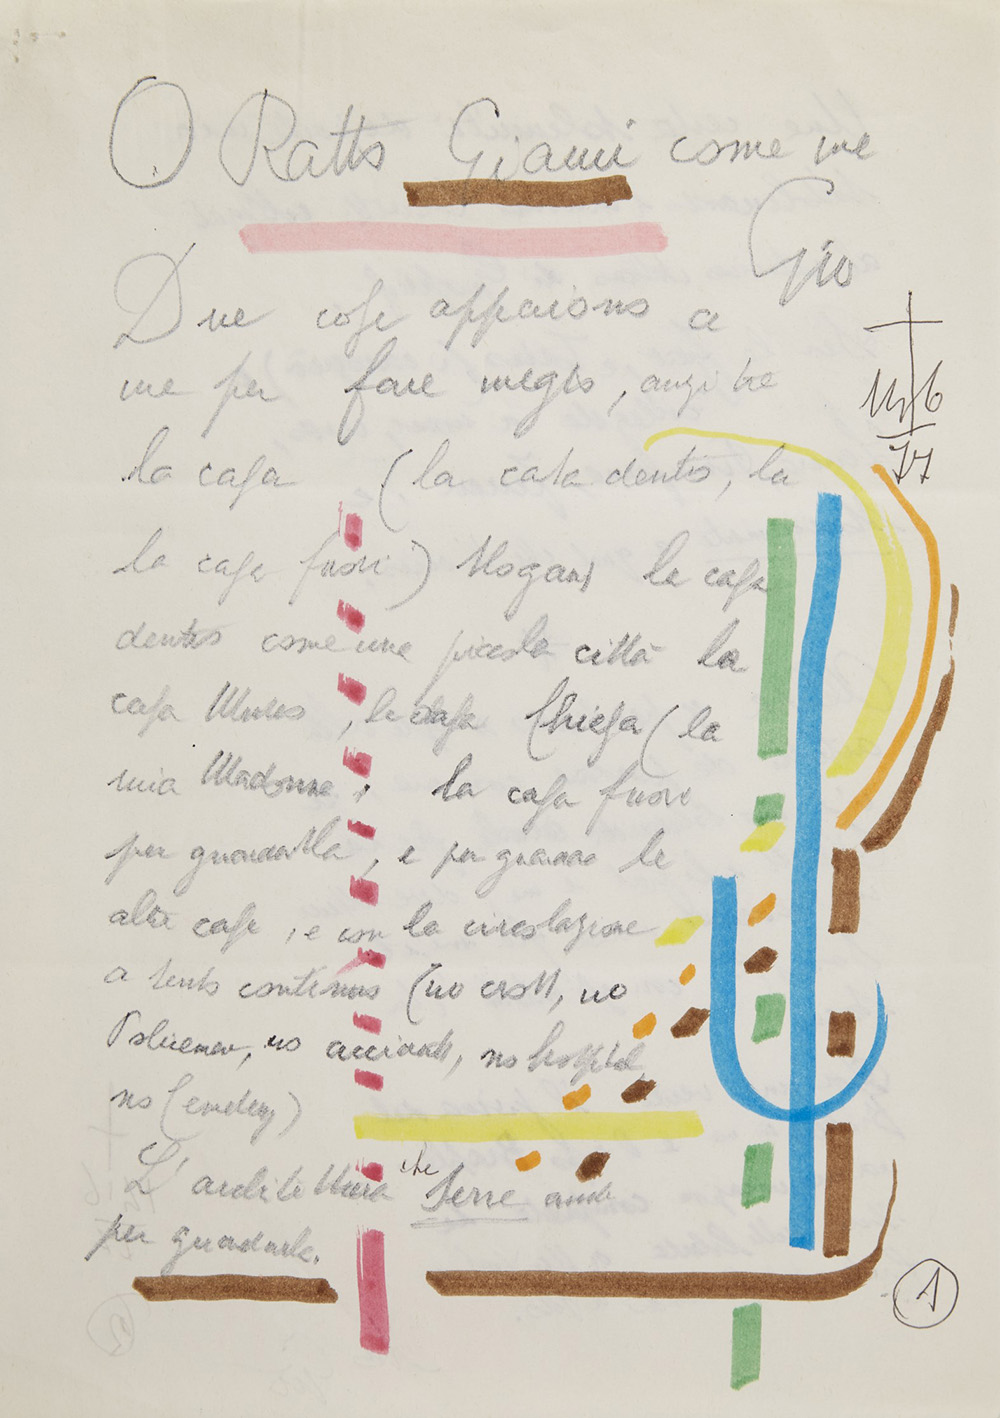 O Ratto Gianni come me
Gio
Due cose appaiono a
me per fare meglio, anzi tre
la casa (la casa dentro, la
la casa fuori) la casa
dentro come una piccola città la
casa Museo, la casa Chiesa (la
mia Madonna; la casa fuori
per guardarla, e per guardare le
altre case, e con la circolazione
a senso continuo (no cross, no
Policeman, no accidents, no hospital,
no
L'architettura che serve anche
per guardarla.
77
1